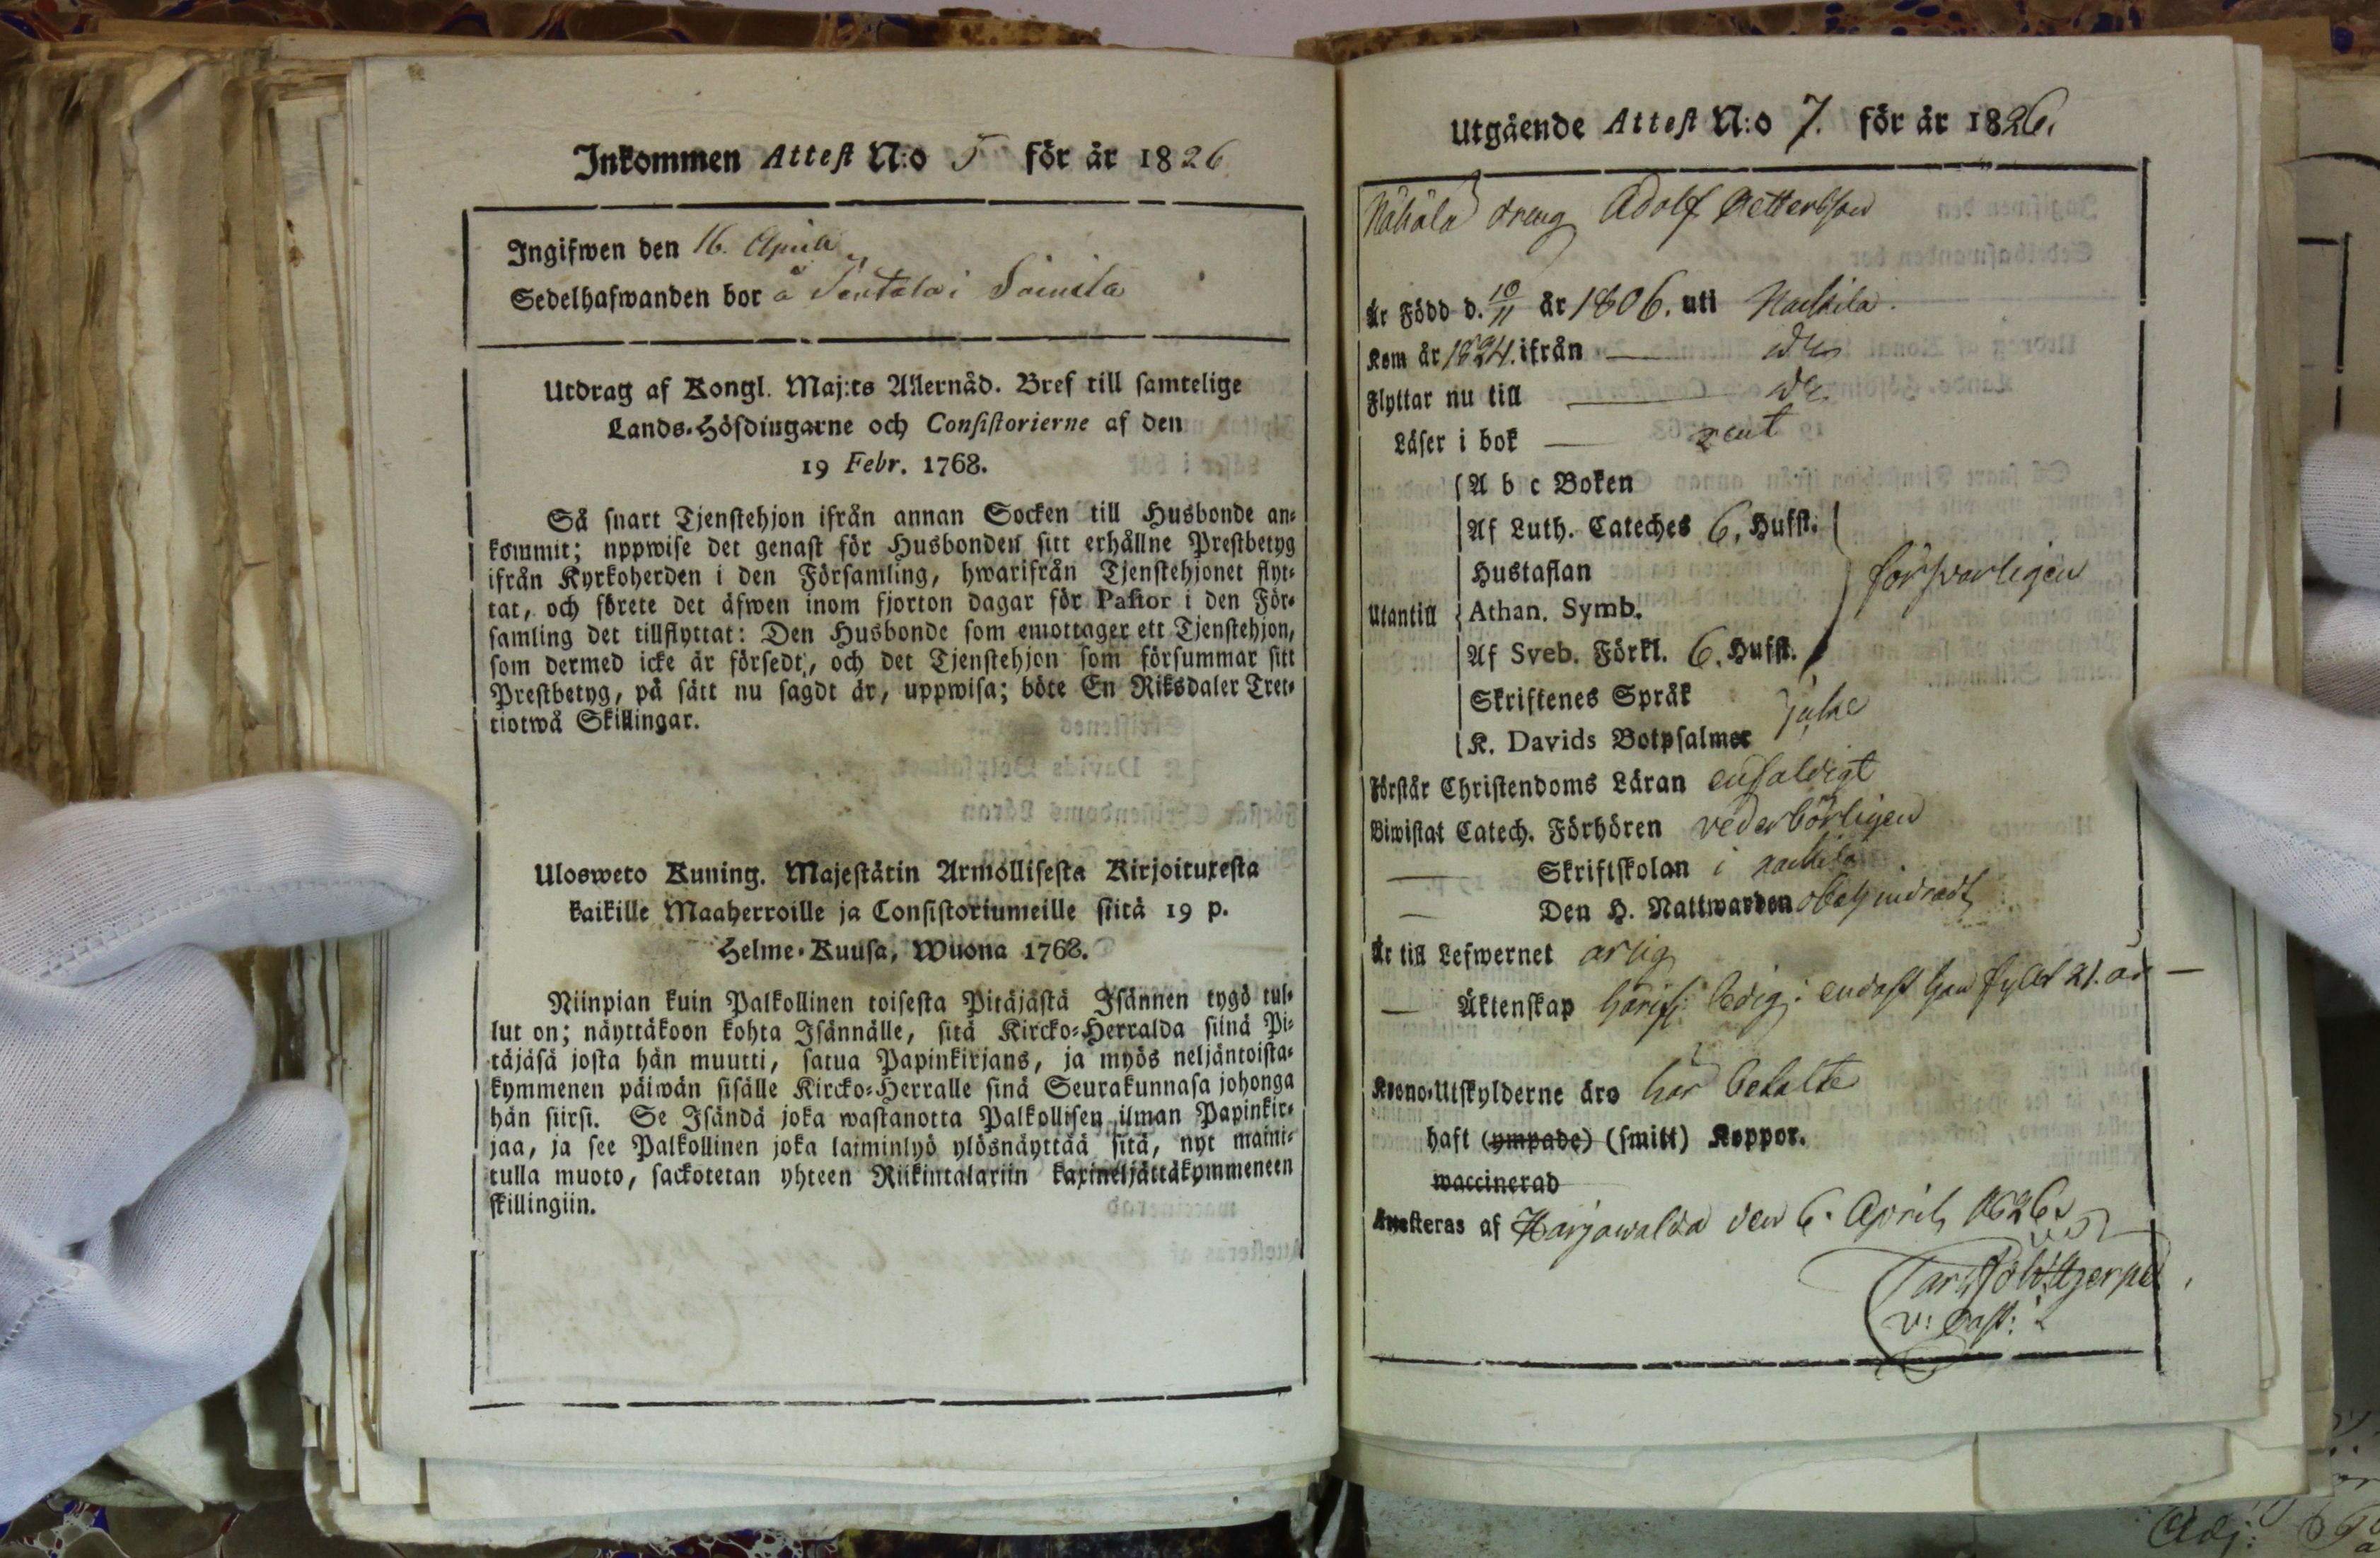 Inkommen Attest N:o 5 för år 1826
Ingifwen den 16. April
Sedelhafwanden bor å i
Utdrag af Kongl. Maj:ts Allernåd. Bref till samtelige
Lands-Höfdingarne och Consistorierne af den
19 Febr. 1768.
Så snart Tjenstehjon ifrån annan Socken till Husbonde an-
kommit; uppwise det genast för Husbonden sitt erhållne Prestbetyg
ifrån Kyrkoherden i den Församling, hwarifrån Tjenstehjonet flyt-
tat, och förete det äfwen inom fjorton dagar för Pastor i den För-
samling det tillflyttat: Den Husbonde som emottager ett Tjenstehjon,
som dermed icke är försedt, och det Tjenstehjon som försummar sitt
Prestbetyg, på sätt nu sagdt är, uppwisa; böte En Riksdaler Tret-
tiotwå Skillingar.
Ulosweto Kuning. Majestätin Armollisesta Kirjoituxesta
kaikille Maaherroille ja Consistoriumeille siitä 19 p.
Helme-Kuusa, Wuona 1768.
Niinpian kuin Palkollinen toisesta Pitäjästä Isännen tygö tul-
lut on; näyttäkoon kohta Isännälle, sitä Kircko-Herralda siinä Pi-
täjäsä josta hän muutti, satua Papinkirjans, ja myös neljäntoista-
kymmenen päiwän sisälle Kircko-Herralle sinä Seurakunnasa johonga
hän siirsi. Se Isändä joka wastanotta Palkollisen ilman Papinkir-
jaa, ja see Palkollinen joka laiminlyö ylösnäyttää sitä, nyt maini-
tulla muoto, sackotetan yhteen Riikintalariin kaxineljättäkymmeneen
skillingiin.
Utgående Attest N:o 7. för år 1826.
dreng Adolf Pettersson
Är Född d. 10/11 år 1806. uti Nackila.
Kom år 1824. ifrån — do
Flyttar nu till — do
Läser i bok — rent
A b c Boken
Af Luth. Cateches 6. Hufst.
Hustaflan
försvarligen
Utantill
Athan. Symb.
Af Sveb. Förkl. 6. Hufst.
Skriftenes Språk
K. Davids Botpsalmer
Förstår Christendoms Läran enfaldigt
Biwistat Catech. Förhören vederbörligen
— Skriftskolan i Nackila
— Den H. Nattwarden obehindradt
Är till Lefwernet ärlig
— Äktenskap ledig: endast han fyller 21. år —
Krono-Utskylderne äro här betalte
haft (ympade) (smitt) Koppor.
waccinerad
Attesteras af Harjawalda den 6. April 1826.
v: Past: